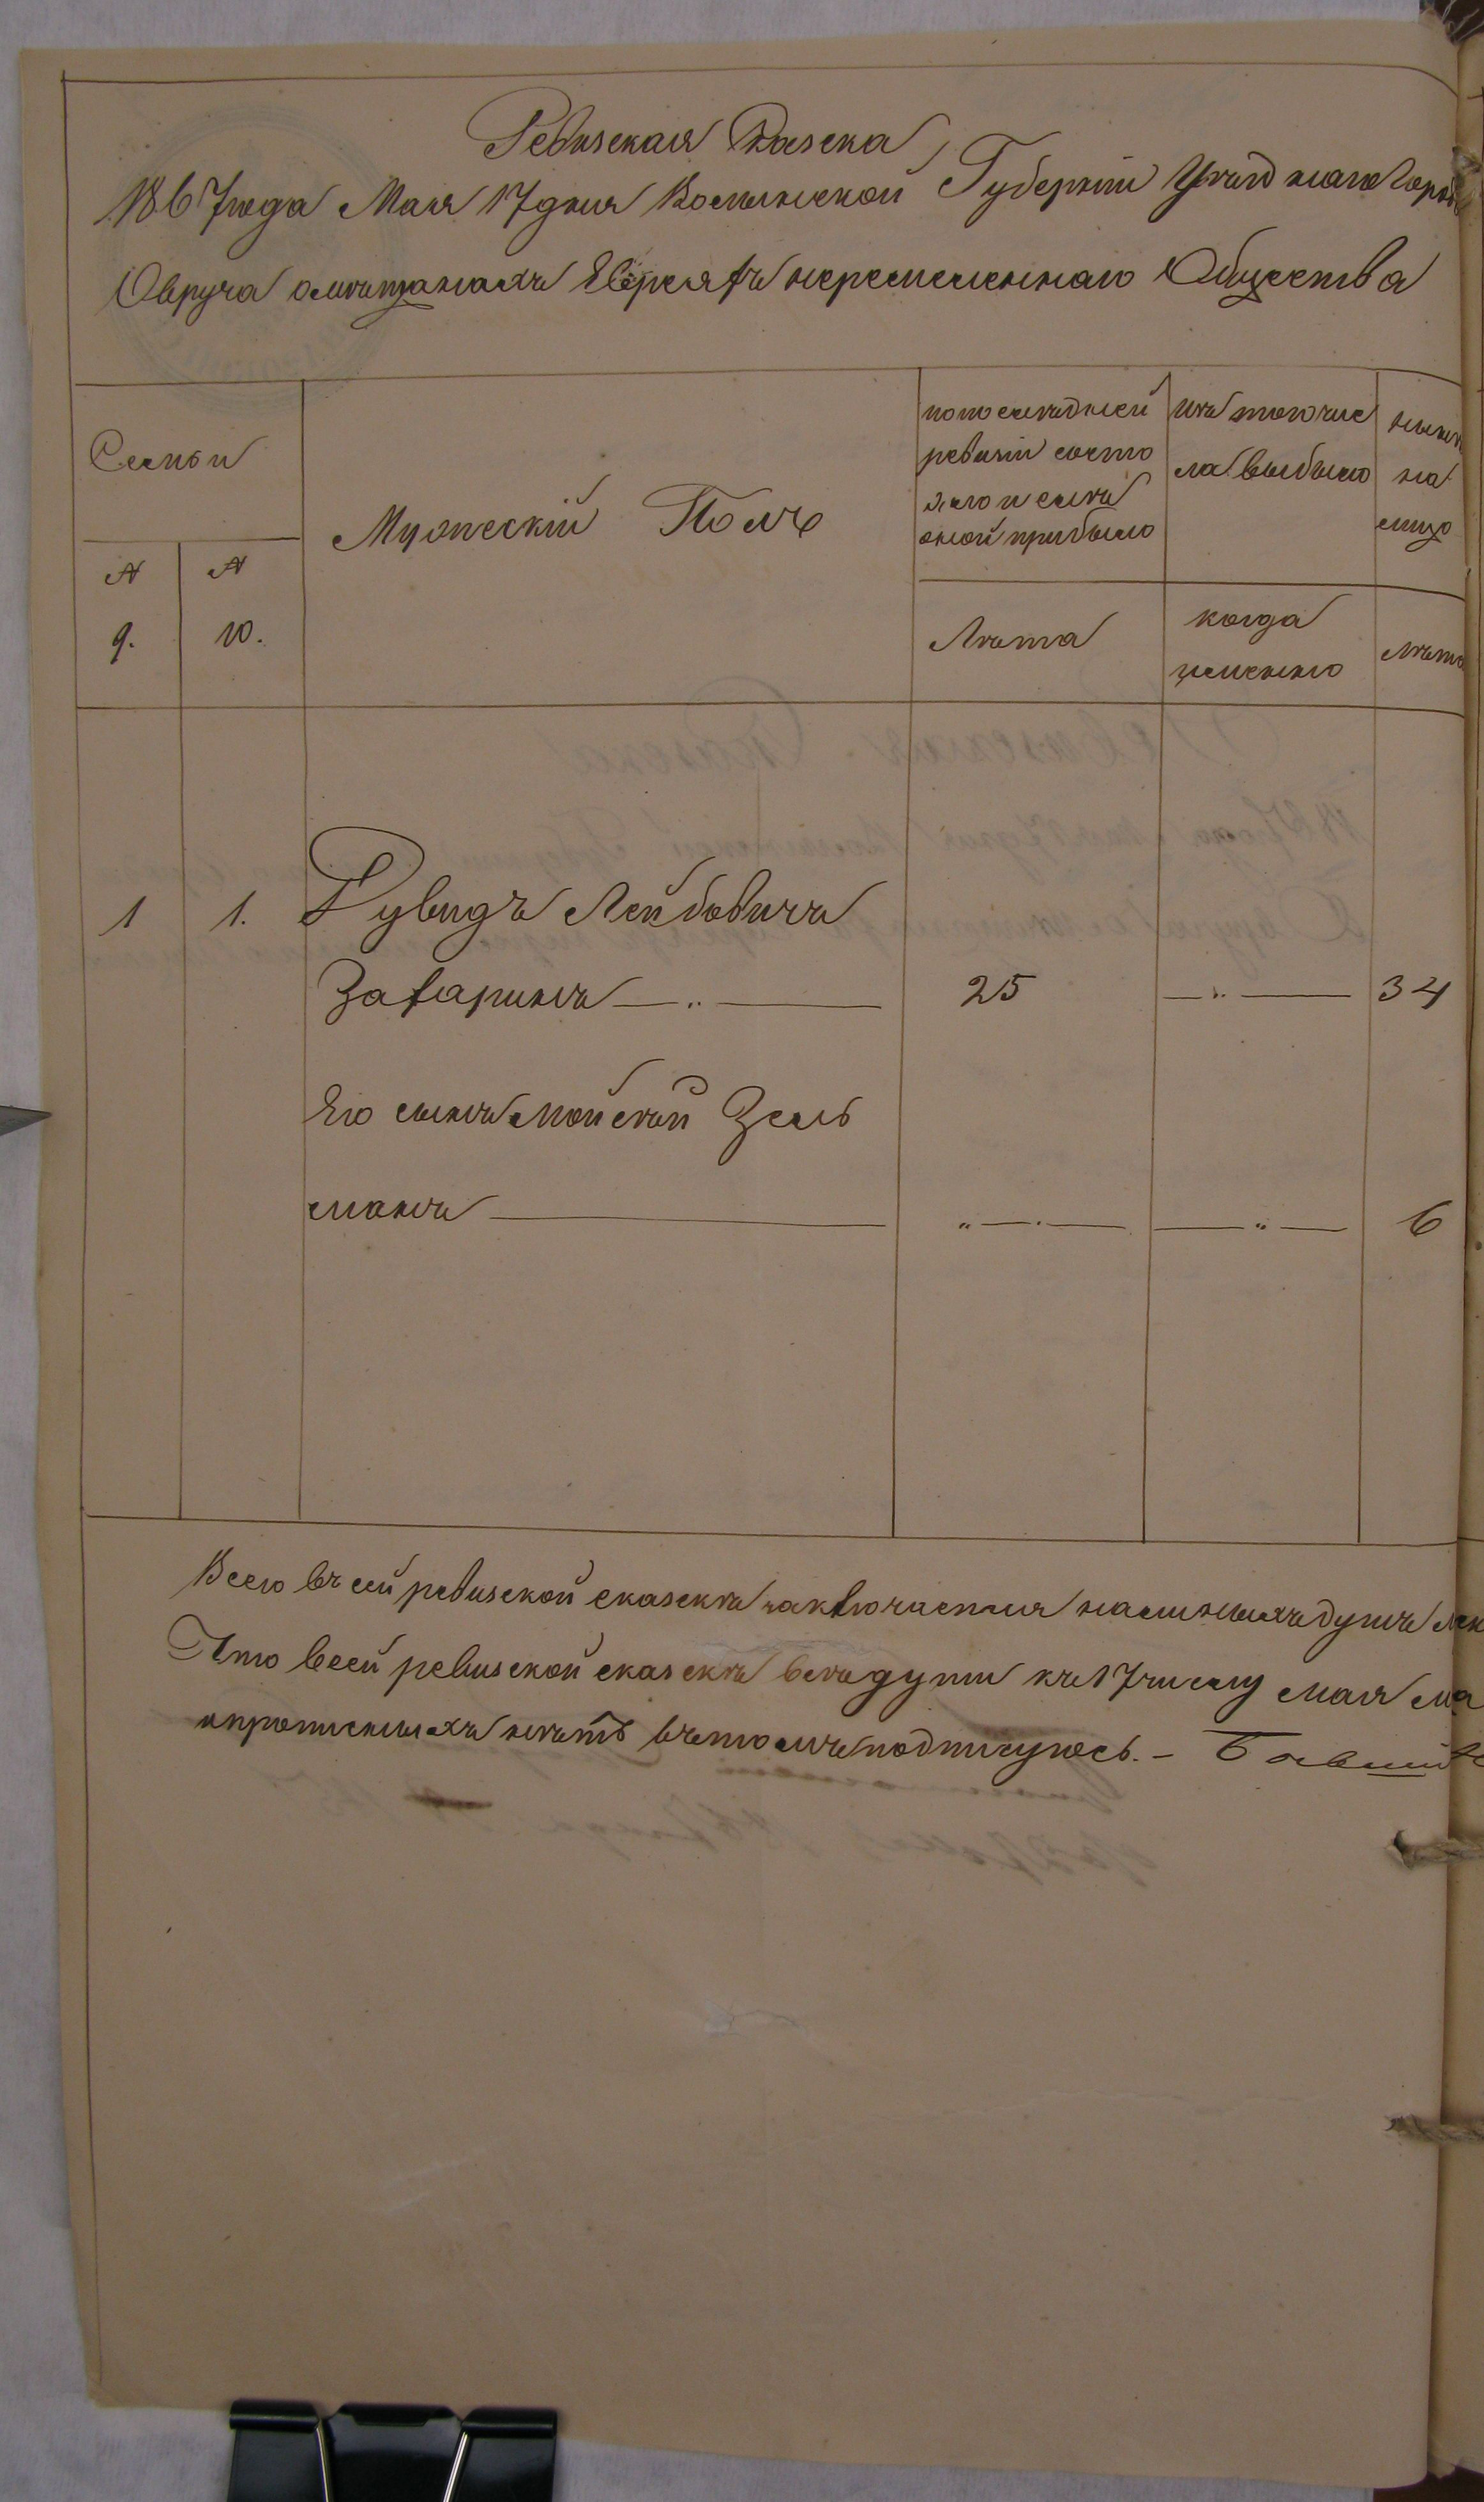 Ревизская Сказка
1867 года Мая 17 дня Волынской Губерніи Уѣзднаго Горо
Овруча о мѣщанахъ Евреяхъ перемененнаго Общества
Семьи
Мужескій Полъ
по послѣдней
ревизіи состо
яло и послѣ
оной прибыло
изъ того чис
ла выбыло
нынѣ
на
лицо
№ №
9. 10.
Лѣта
когда
именно
лѣта
1 1. Рувидъ Лейбовичъ
Захаринъ 25 34
Его сынъ Мойсѣй Зель
манъ 6
Всего въ сей ревизской сказкѣ заключается наличныхъ душъ
Что въ сей ревизской сказкѣ всѣ души къ 17 числу мая
и прописныхъ нѣтъ въ томъ подписуюсь. –